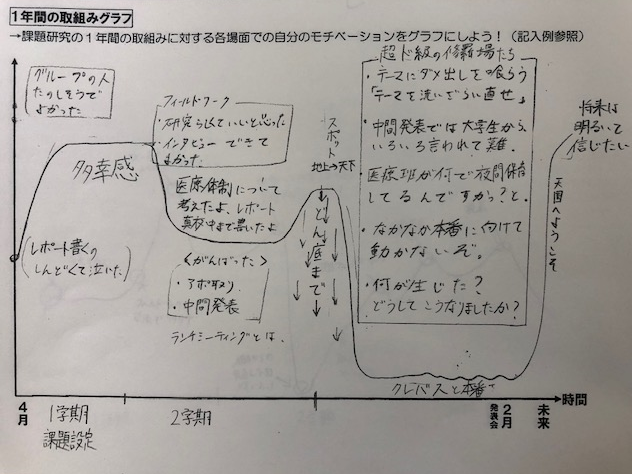 1年間の取組みグラフ
→課題研究の1年間の取組みに対する各場面での自分のモチベーションをグラフにしよう！（記入例参照）
グループの人
たのしそうで
よかった
多幸感
レポート書くの
しんどくて泣いた
フィールドワーク
・研究らしくていいと思った
・インタビューできて
よかった
医療体制について
考えたよ、レポート
真夜中まで書いたよ
くがんばった>
・アポ取り
・中間発表
ランチミーティングとは、
スポット
地上→天下
どん底まで
超ド級の修羅場たち
・テーマにダメ出しを喰らう
「テーマを洗いざらい直せ」
・中間発表では大学生から
いろいろ言われて
医療班が何で夜間保育
してるんですかっ?と。
・なかなか本番に向けて
動かないぞ。
・何が生じた?
どうしてこうなりましたか?
将来は
明るいて
信じたい
天国へようこそ
クレバスと本番
時間
4月
1学期
課題設定
2学期
2月
発表会
未来